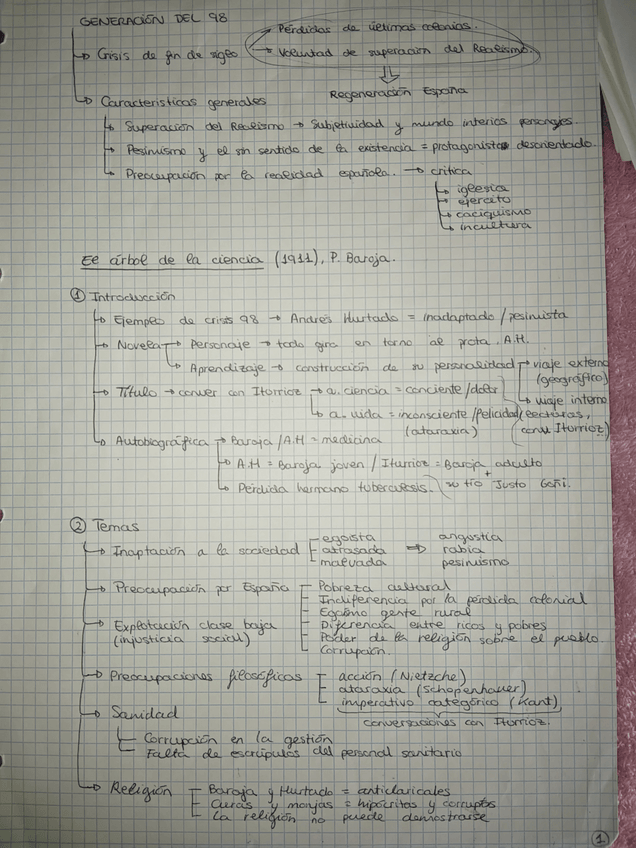 GENERACIÓN DEL 98
→ Crisis de fin de siglo → Pérdidas de últimas colonias.
→ Voluntad de superación del Realismo.
⇓
Regeneración España
→ Características generales
→ Superación del Realismo → Subjetividad y mundo interior personajes.
→ Pesimismo y el sin sentido de la existencia = protagonista desorientado.
→ Preocupación por la realidad española. → crítica
→ iglesia
→ ejercito
→ caciquismo
→ incultura
El árbol de la ciencia (1911), P. Baroja.
① Introducción
→ Ejemplo de crisis 98 → Andrés Hurtado = inadaptado / pesimista
→ Novela → Personaje → todo gira en torno al prota. A.H.
→ Aprendizaje → construcción de su personalidad → viaje externo (geográfico)
→ viaje interno (lecturas, conv. Iturrioz)
→ Título → conver con Iturrioz → a. ciencia = conciente / dolor
→ a. vida = inconsciente / felicidad (ataraxia)
→ Autobiográfica → Baroja / A.H = medicina
→ A.H = Baroja joven / Iturrioz = Baroja adulto + su tío Justo Goñi.
→ Pérdida hermano tuberculosis.
② Temas
→ Inaptación a la sociedad egoísta ⇒ angustia
atrasada rabia
malvada pesimismo
→ Preocupación por España Pobreza cultural
Indiferencia por la pérdida colonial
Egoímo gente rural
→ Explotación clase baja Diferencia entre ricos y pobres
(injusticia social) Poder de la religión sobre el pueblo.
Corrupción.
→ Preocupaciones filosóficas acción (Nietzche)
ataraxia (Schopenhauer)
imperativo categórico (Kant)
conversaciones con Iturrioz.
→ Sanidad
Corrupción en la gestión
Falta de escrúpulos del personal sanitario
→ Religión Baroja y Hurtado = anticlaricales
Curas y monjas = hipócritas y corruptos
La religión no puede demostrarse
1